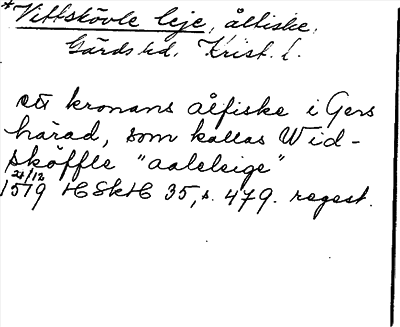 *Vittskövle leje, ålfiske,
Gärds hd, Krist. l.
ett kronans ålfiske i Gers
härad, som kallas Wid-
sköffle "aalelsige"
21/12
1519 HSkH 35, s. 479. regest.